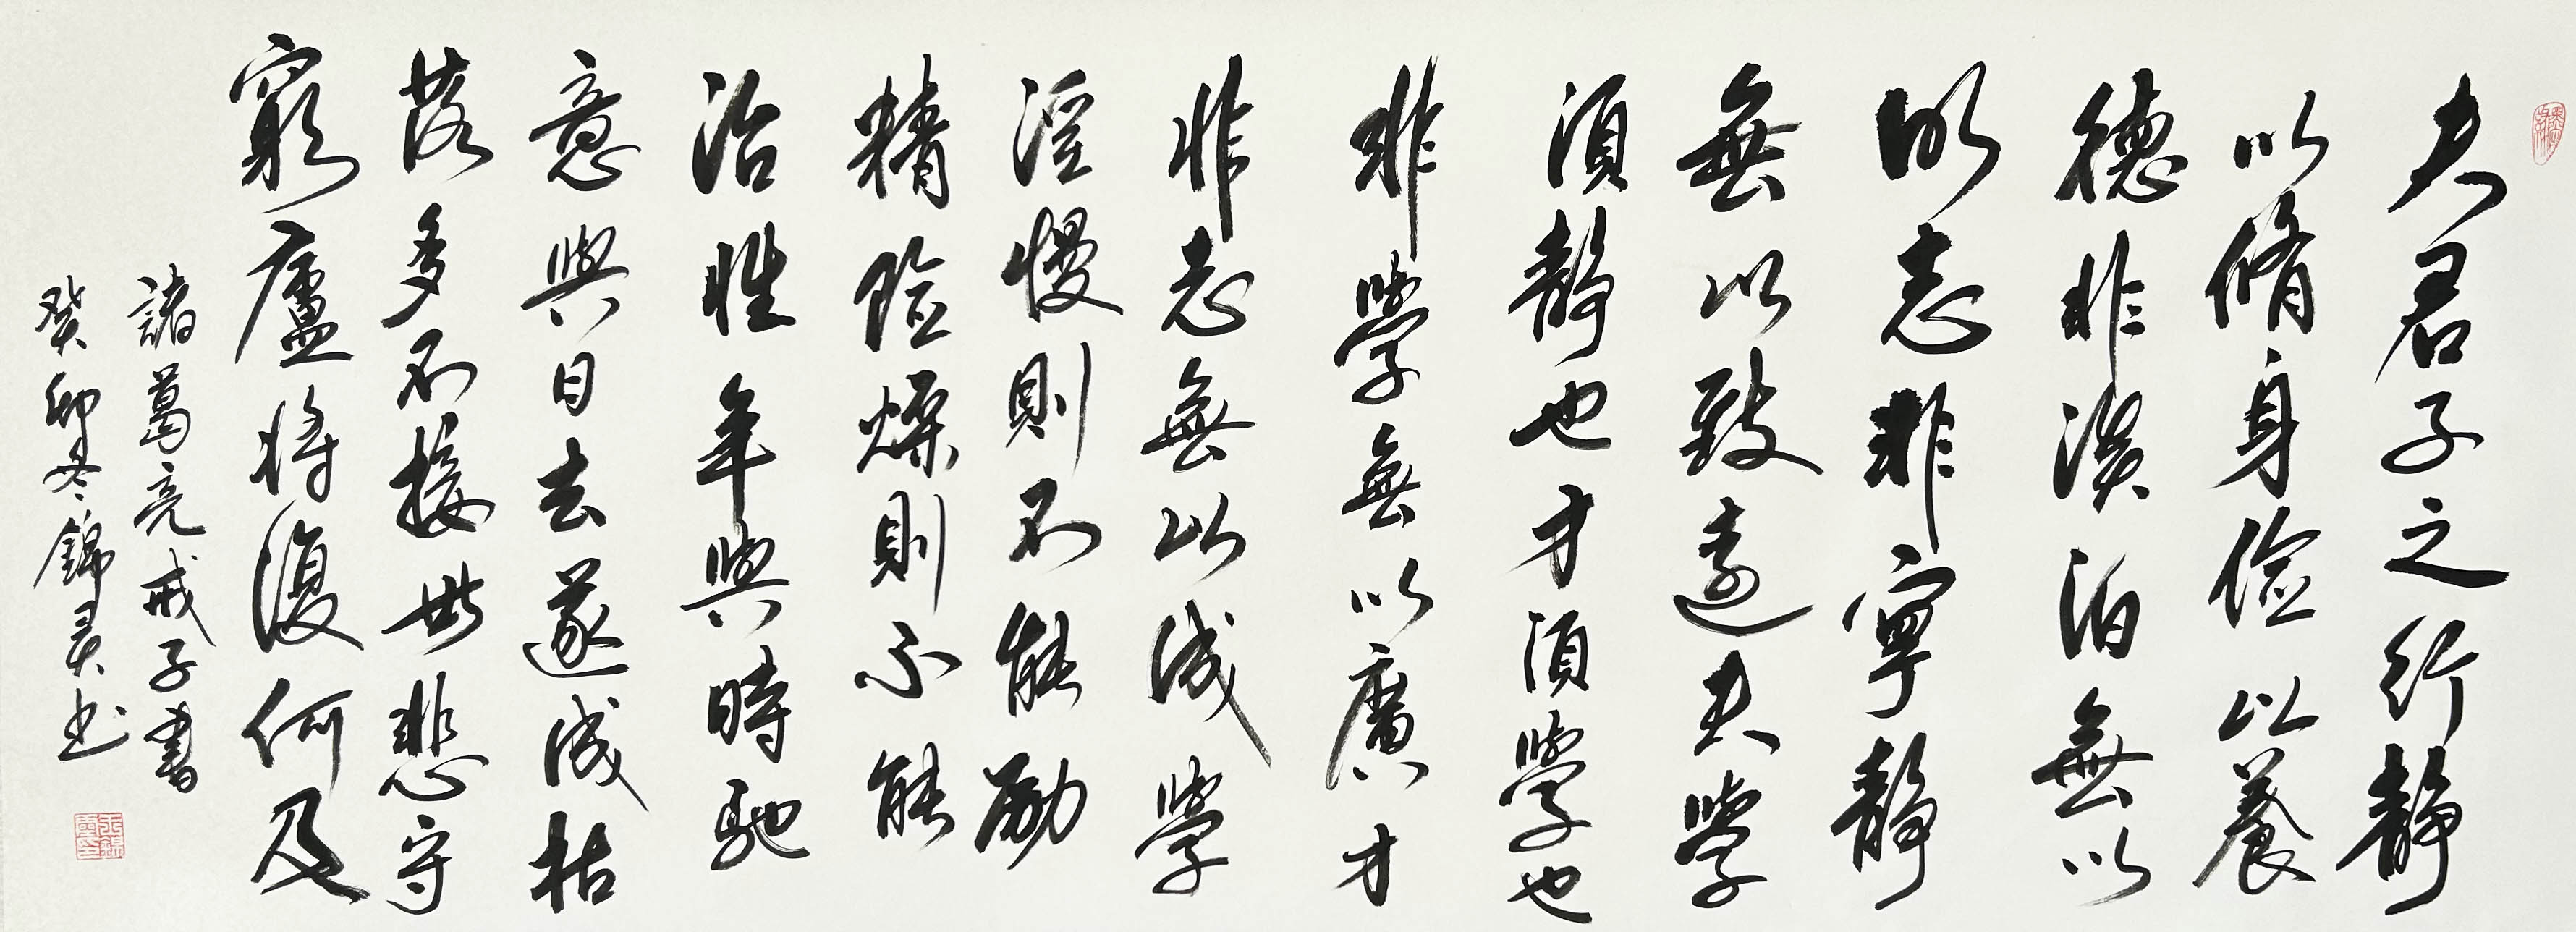 夫君子之行靜
以脩身儉以養
德非淡泊無以
明志非寧靜
無以致遠夫學
須靜也才須學也
非學無以廣才
非志無以成學
淫慢則不能勵
精險燥則不能
治性年與時馳
意與日去遂成枯
落多不接世悲守
窮廬將復何及
諸葛亮戒子書
癸卯冬錦灵书